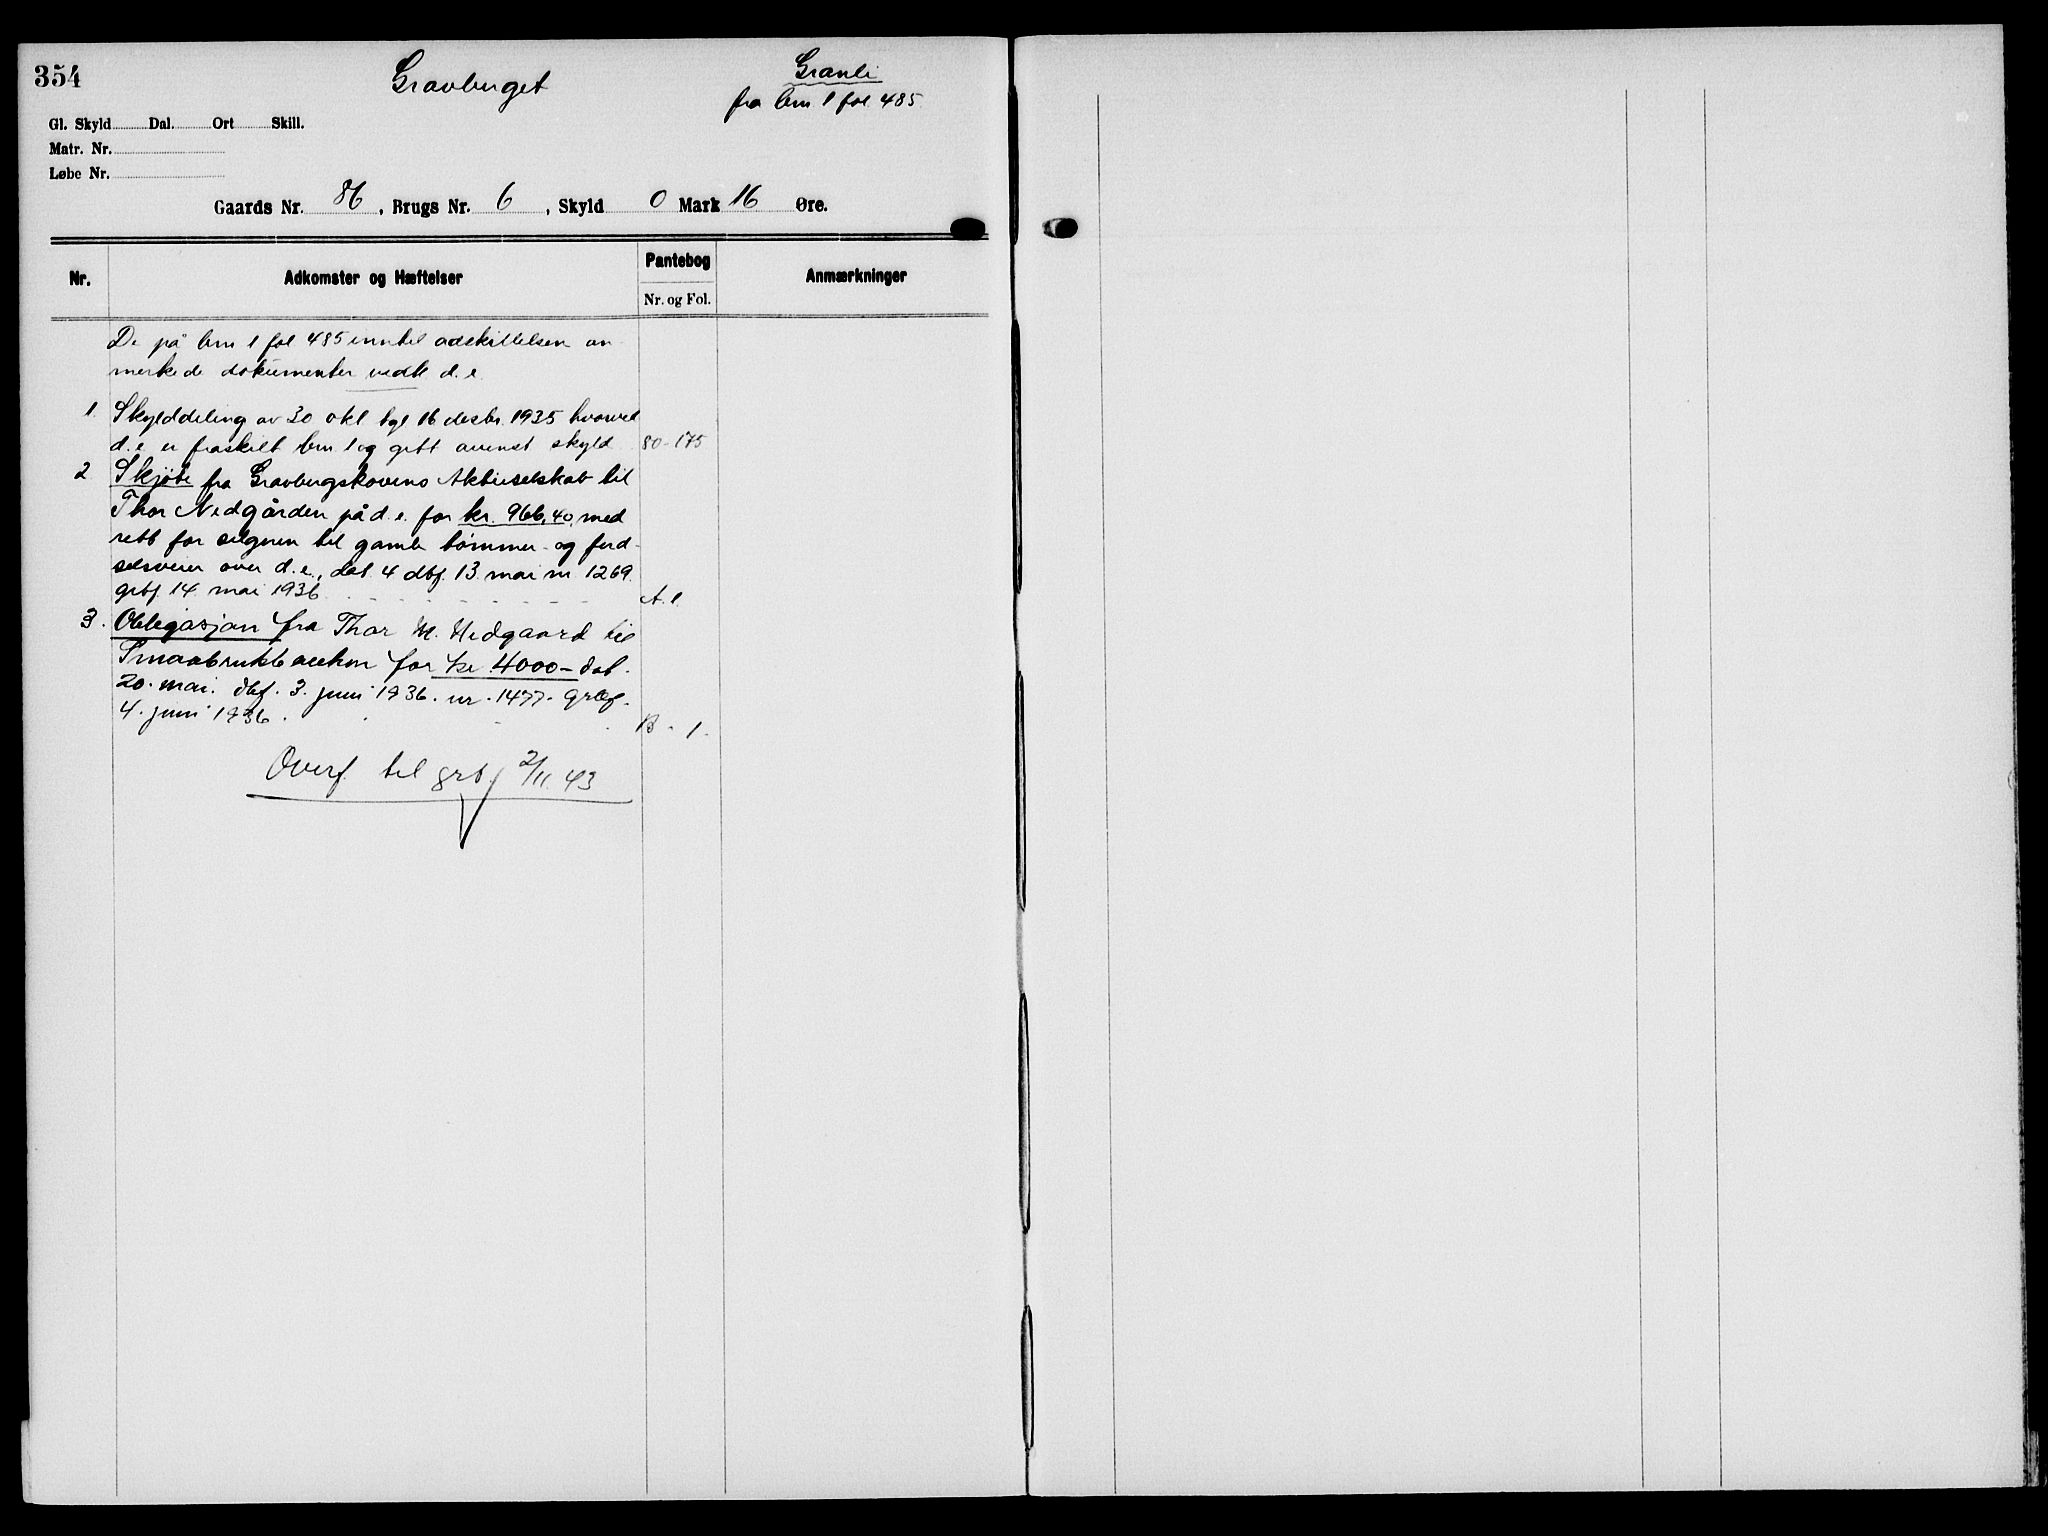 354
Gravberget
Granli
fra brn 1 fol. 485
Gl. Skyld Dal. Ort Skill.
Matr. Nr.
Løbe Nr.
Gaards Nr. 86, Brugs Nr. 6, Skyld 0 Mark 16 Øre.
Nr. Adkomster og Hæftelser Pantebog Anmærkninger
Nr. og Fol.
De på brn 1 fol 485 inntil adskillelsen an-
merkede dokumenter vedk d. e.
1. Skylddeling av 30 okt tgl 16 desbr. 1935 hvorved
d. e. er fraskilt brn 1 og gitt ovenst skyld 80-175
2 Skjöte fra Gravbergskovens Aktieselskab til
Thor Nedgården på d. e. for kr. 966,40, med
rett for selgeren til gamle tömmer- og ferd-
selsveier over d. e., dat. 4 dbf. 13. mai nr 1269.
grbf 14. mai 1936 A. 1.
3. Obligasjon fra Thor M. Nedgaard til
Smaabrukbanken for kr. 4000- dat.
20. mai. dbf. 3. juni 1936. nr. 1477. grbf.
4. juni 1936. B - 1.
Overf. til grb. 2/11. 43